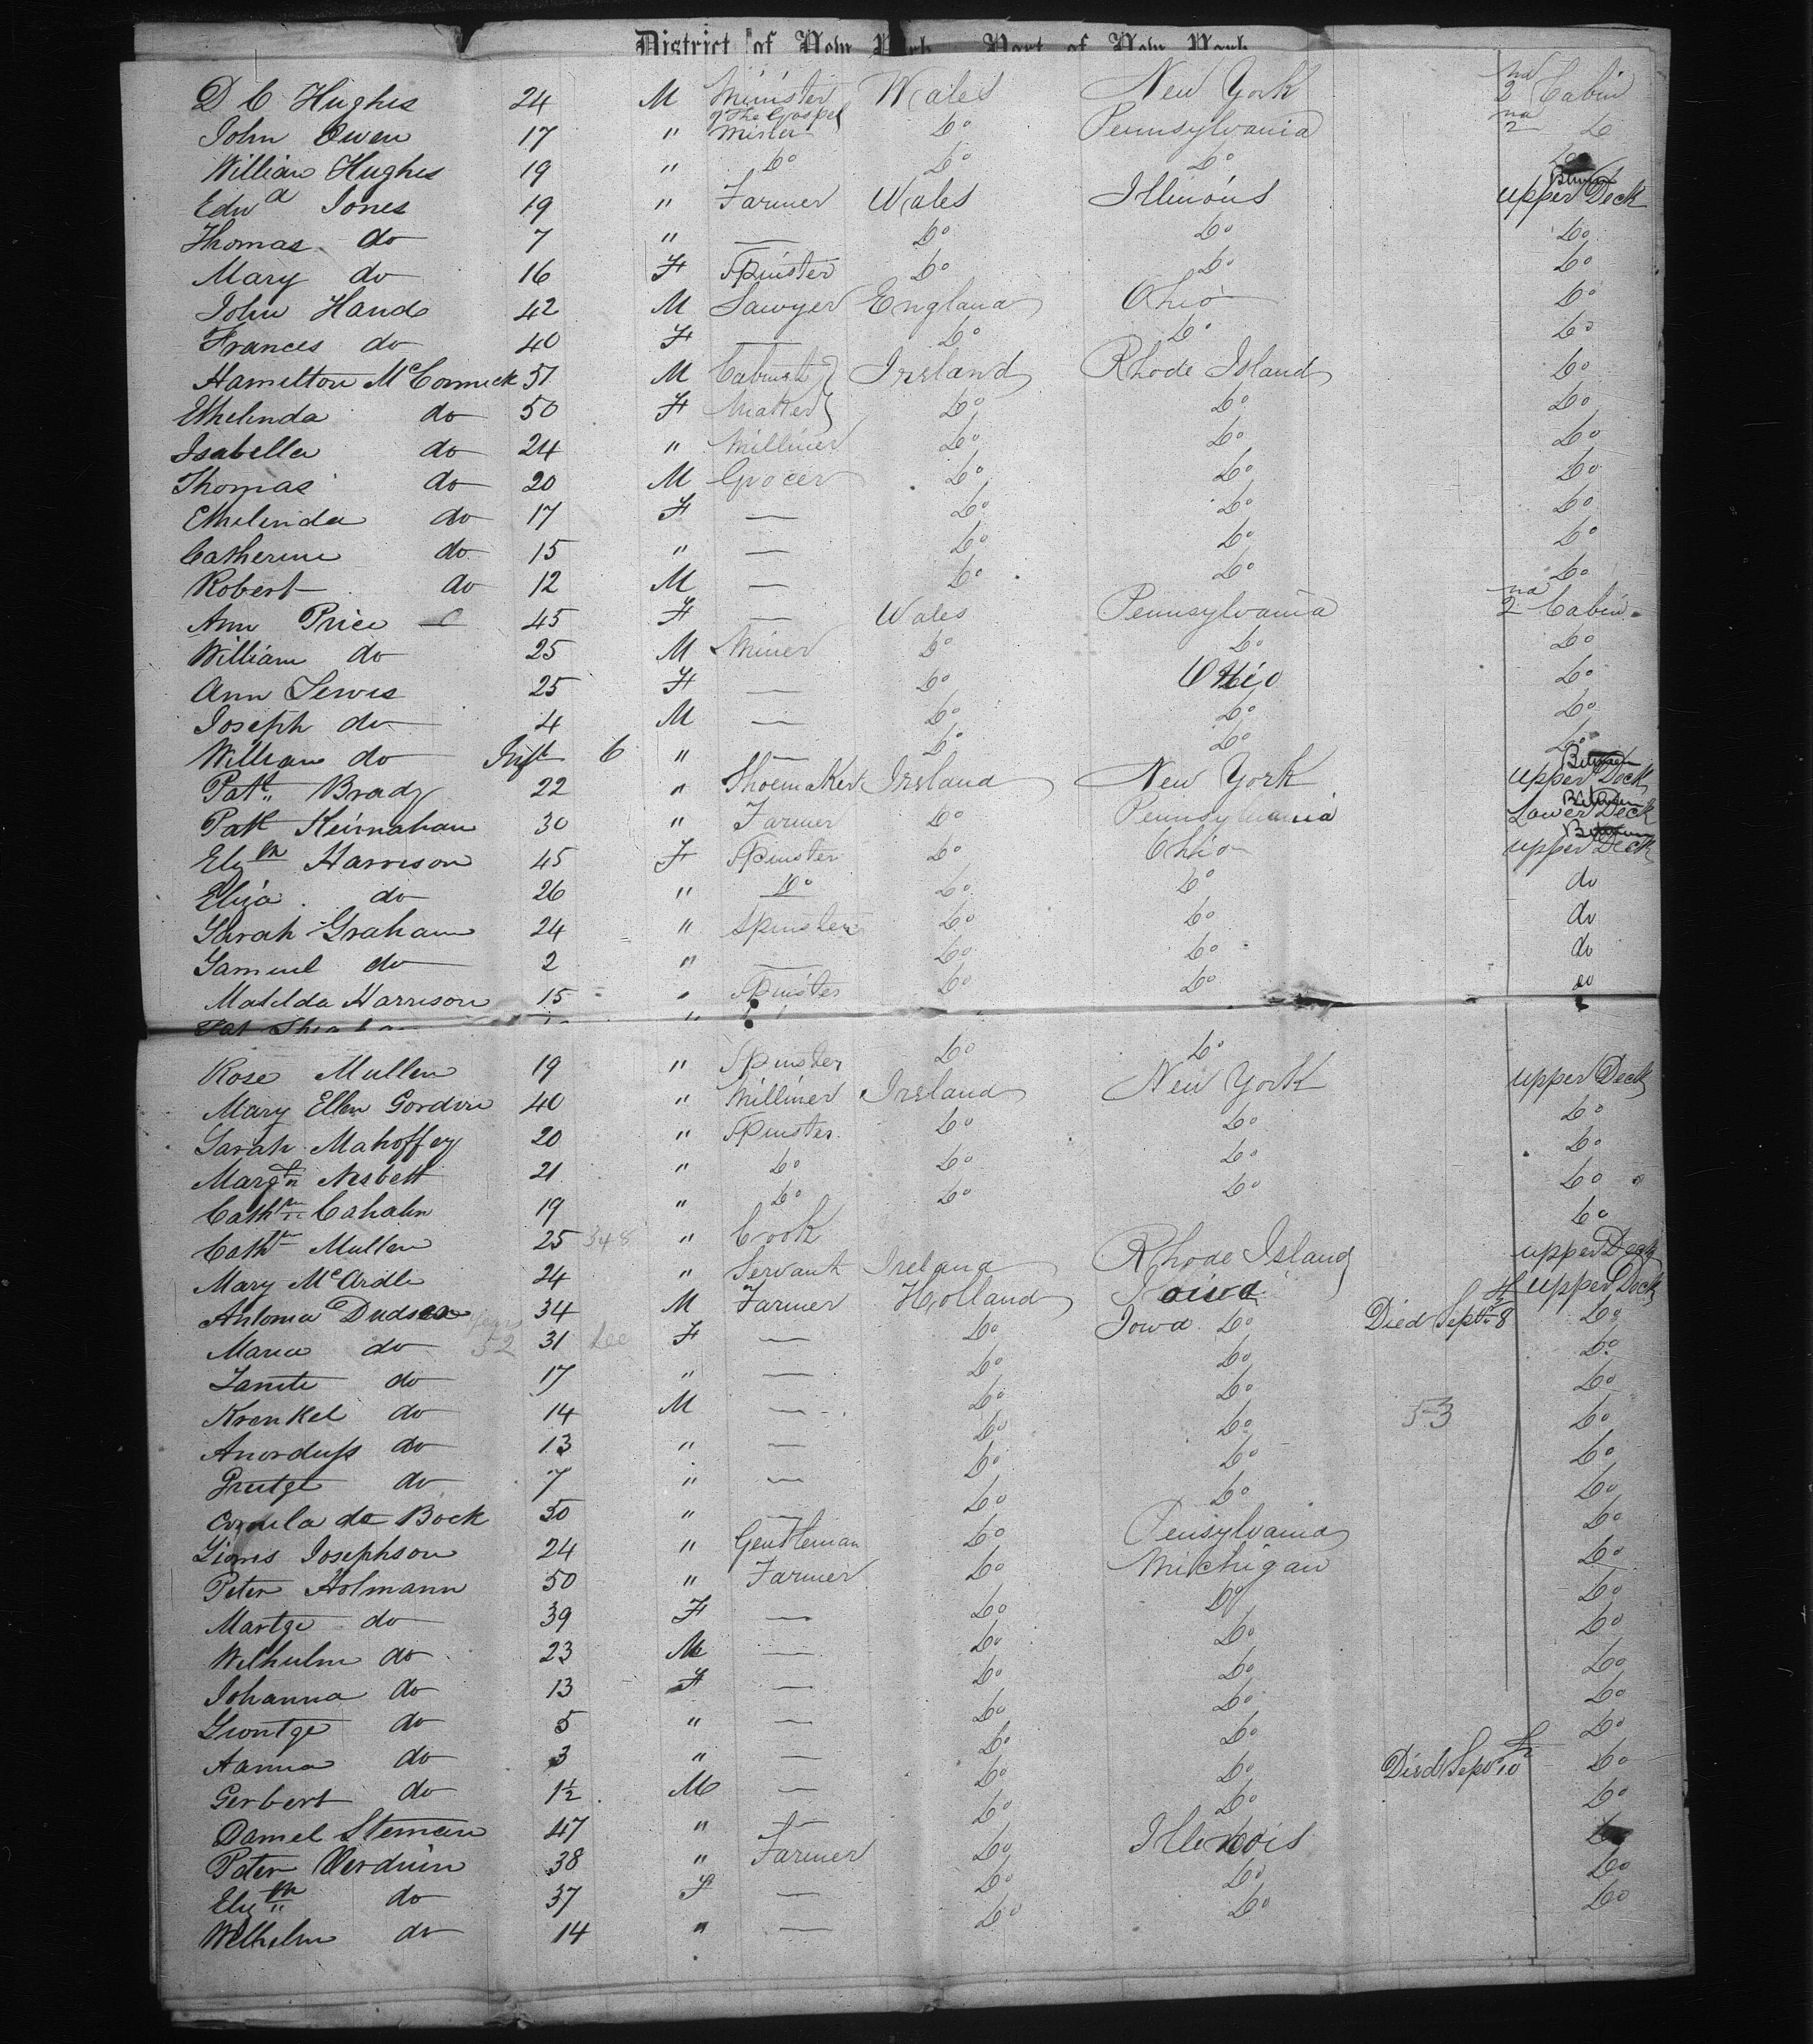 District of New York Port of New York
D C Hughes 24 M Minister of The Gospel Wales New York 2nd Cabin
John Owen 17 " Do Pennsylvania 2nd Do
William Hughes 19 " Do Do Do Do
Edwd Jones 19 " Farmer Wales Illinois upper Deck
Thomas do 7 " — Do Do Do
Mary do 16 F Spinster Do Do Do
John Hand 42 M Sawyer England Ohio Do
Frances do 40 F — Do Do Do
Hamilton McCormick 51 M Cabinet Ireland Rhode Island Do
Ethelinda do 50 F Maker Do Do Do
Isabella do 24 " Milliner Do Do Do
Thomas do 20 M Grocer Do Do Do
Ethelinda do 17 F — Do Do Do
Catherine do 15 " — Do Do Do
Robert do 12 M — Do Do Do
Ann Price 45 F — Wales Pennsylvania 2nd Cabin
William do 25 M Miner Do Do Do
Ann Lewis 25 F — Do Ohio Do
Joseph do 4 M — Do Do Do
William do Inft 6 " — Do Do Do
Patk Brady 22 " Shoemaker Ireland New York upper Deck
Patk Keirnahan 30 " Farmer Do Pennsylvania Lower Deck
Elizth Harrison 45 F Spinster Do Ohio upper Deck
Eliza do 26 " Do Do Do do
Sarah Graham 24 " Spinster Do Do do
Samuel do 2 " — Do Do do
Matilda Harrison 15 " Spinster Do Do do
Rose Mullen 19 " Spinster Do Do
Mary Ellen Gordon 40 " Milliner Ireland New York upper Deck
Sarah Mahoffey 20 " Spinster Do Do Do
Margt Nesbett 21 " Do Do Do Do
Cathn Cahaln 19 " Do Do Do Do
Cathn Mullen 25 348 " Cook Do
Mary McArdle 24 " Servant Ireland Rhode Island upper Deck
Antonia Dudsen 34 M Farmer Holland Iowa upper Deck
Maria do 31 F — Do Iowa Do Died Septr 8th Do
Janete do 17 " — Do Do Do
Krenkel do 14 M — Do Do Do
do 13 " — Do Do 53 Do
do 7 " — Do Do Do
de Bock 30 " — Do Do Do
Josephson 24 " Gentleman Do Pensylvania Do
Peter Holmann 50 " Farmer Do Michigan Do
Martge do 39 F — Do Do Do
Wilhulm do 23 M — Do Do Do
Johanna do 13 F — Do Do Do
do 5 " — Do Do Do
Hanna do 3 " — Do Do Do
Gerbert do 1½ M — Do Do Died Sepr 10th Do
Daniel 47 " — Do Do Do
Peter Verduin 38 " Farmer Do Illenois Do
Elizth do 37 F — Do Do Do
Wilhelm do 14 " — Do Do Do